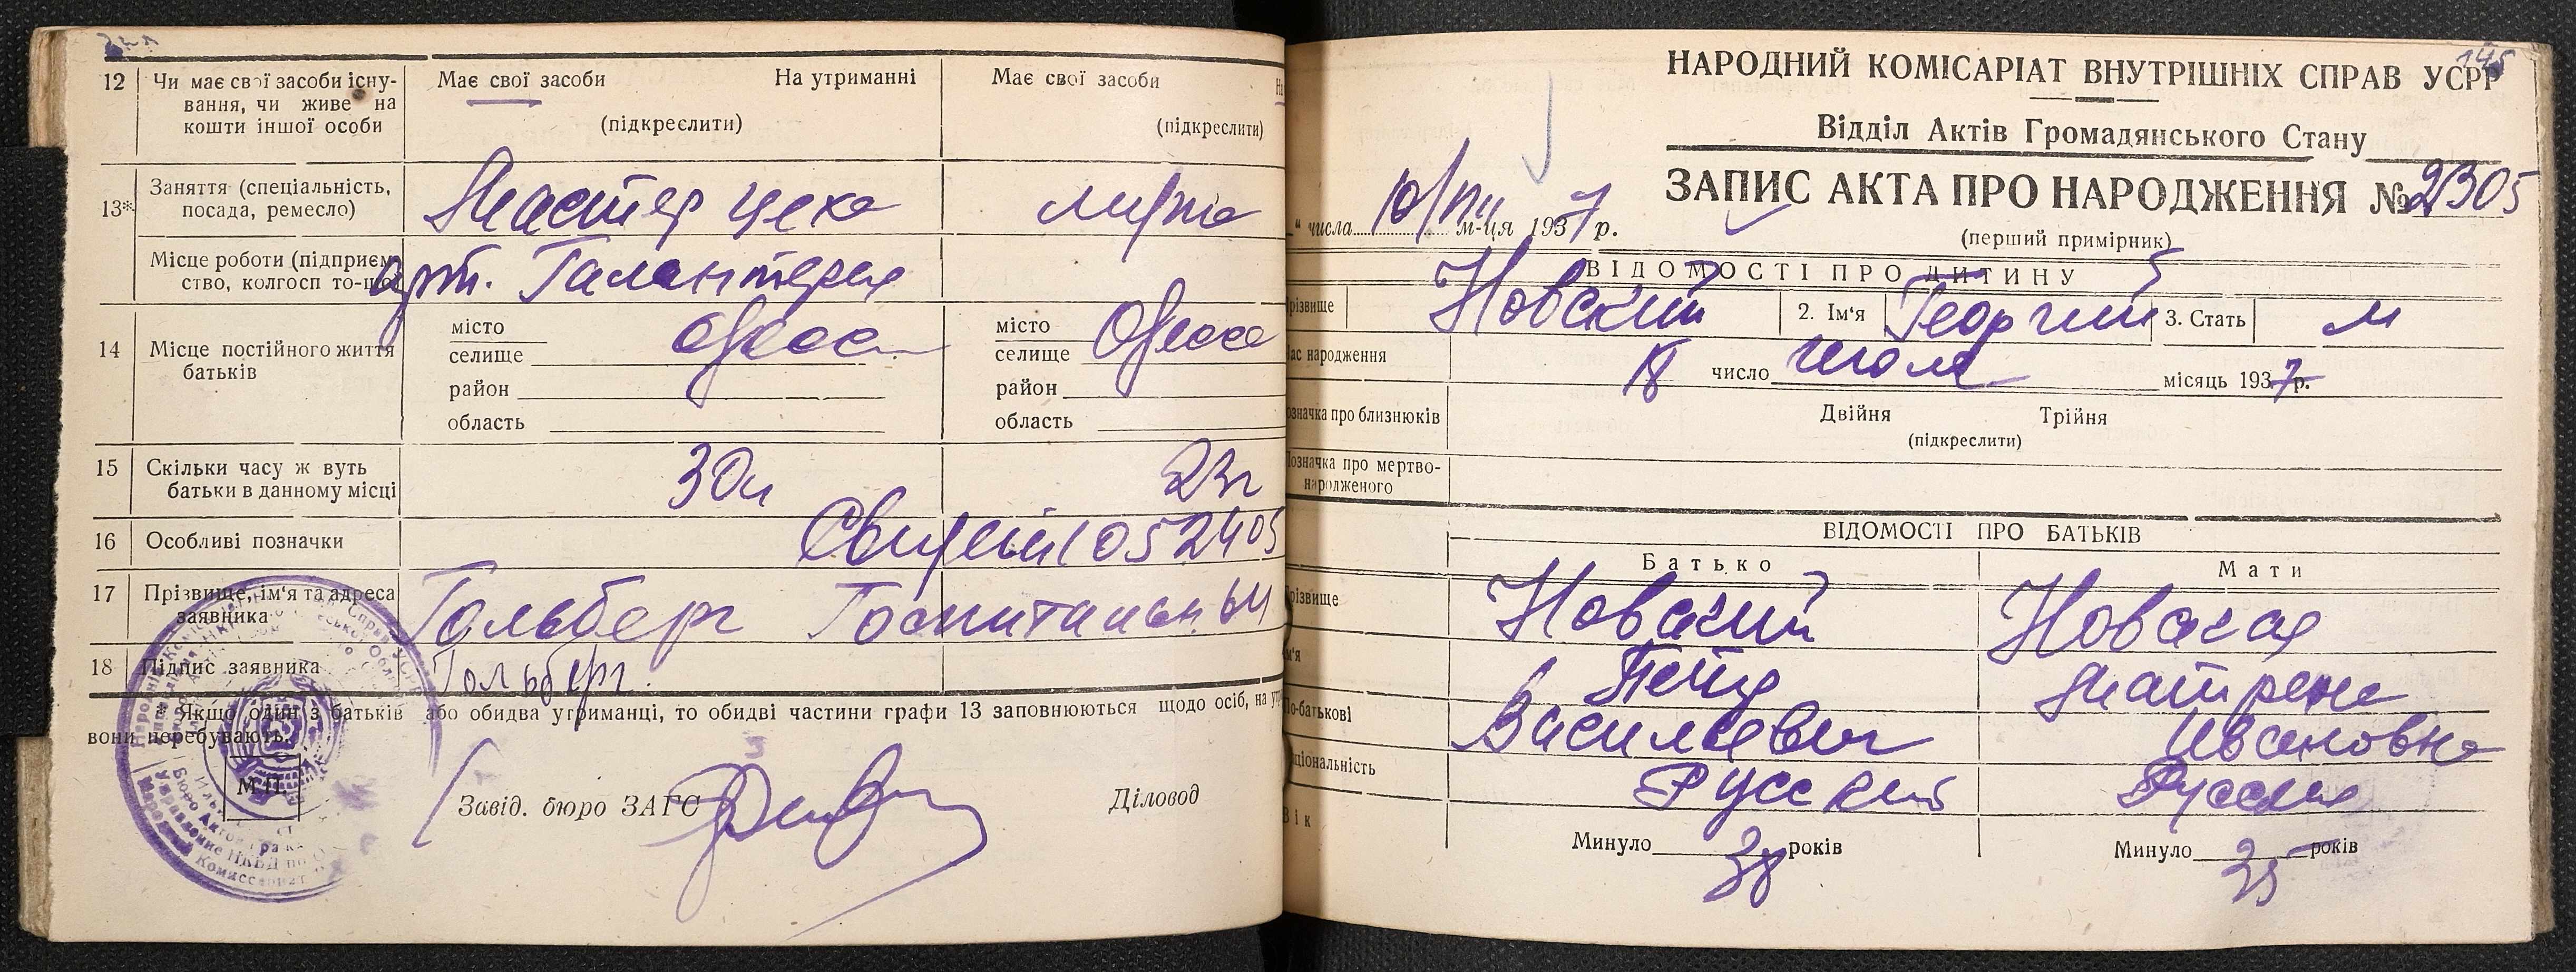 12 Чи має свої засоби існу-
вання, чи живе на
кошти іншої особи
Має свої засоби На утриманні
(підкреслити)
Має свої засоби
(підкреслити)
13* Заняття (спеціальність,
посада, ремесло)
Мастер цеха
Місце роботи (підприєм-
ство, колгосп то-що)
арт. Галантерея
14 Місце постійного життя
батьків
місто
селище Одесса
район
область
місто
селище Одесса
район
область
15 Скільки часу ж вуть
батьки в данному місці
30л 23г
16 Особливі позначки
052405
17 Прізвище, ім'я та адреса
заявника
Гольберг Госпитальн. 64
18 Підпис заявника
Гольберг
* Якщо один з батьків або обидва утриманці, то обидві частини графи 13 заповнюються щодо осіб, на
вони перебувають.
М.П.
Завід. бюро ЗАГС Діловод
145
НАРОДНИЙ КОМІСАРІАТ ВНУТРІШНІХ СПРАВ УСРР
Відділ Актів Громадянського Стану
ЗАПИС АКТА ПРО НАРОДЖЕННЯ № 2305
(перший примірник)
" числа 10/VIII м-ця 1937 р.
ВІДОМОСТІ ПРО ДИТИНУ
різвище Новский 2. Ім'я Георгий 3. Стать м
ас народження 18 число июля місяць 1937 р.
означка про близнюків Двійня Трійня
(підкреслити)
Позначка про мертво-
народженого
ВІДОМОСТІ ПРО БАТЬКІВ
Батько Мати
різвище Новский Новская
м'я Петр Матрена
По-батькові Васильевич Ивановна
ціональність Русский Русская
Вік Минуло 38 років Минуло 35 років